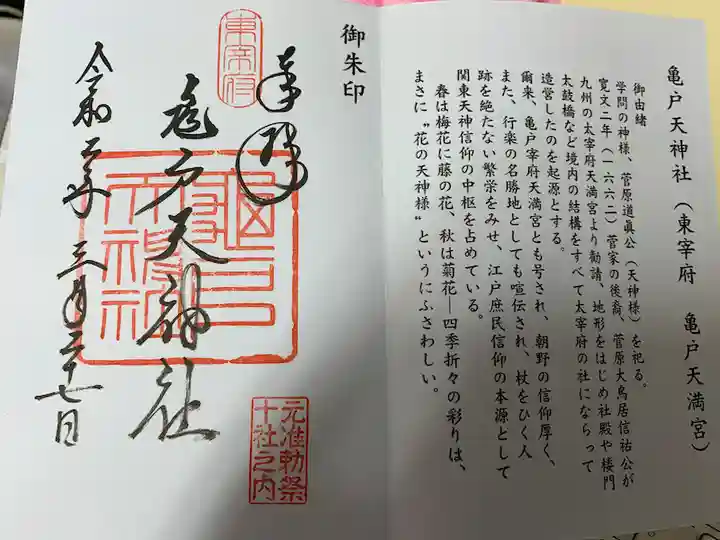 亀戸天神社（東宰府　亀戸天満宮）
御由緒
学問の神様、菅原道眞公（天神様）を祀る。
寛文二年（一六六二）菅家の後裔、菅原大鳥居信祐公が
九州の太宰府天満宮より勧請、地形をはじめ社殿や楼門
太鼓橋など境内の結構をすべて太宰府の社にならって
造営したのを起源とする。
爾来、亀戸宰府天満宮とも号され、朝野の信仰厚く、
また、行楽の名勝地としても喧伝され、杖をひく人
跡を絶たない繁栄をみせ、江戸庶民信仰の本源として
関東天神信仰の中枢を占めている。
春は梅花に藤の花、秋は菊花―四季折々の彩りは、
まさに〝花の天神様〟というにふさわしい。
御朱印
奉拝
東宰府
亀戸天神社
亀戸天神社
元准勅祭
十社之内
令和二年三月二十七日